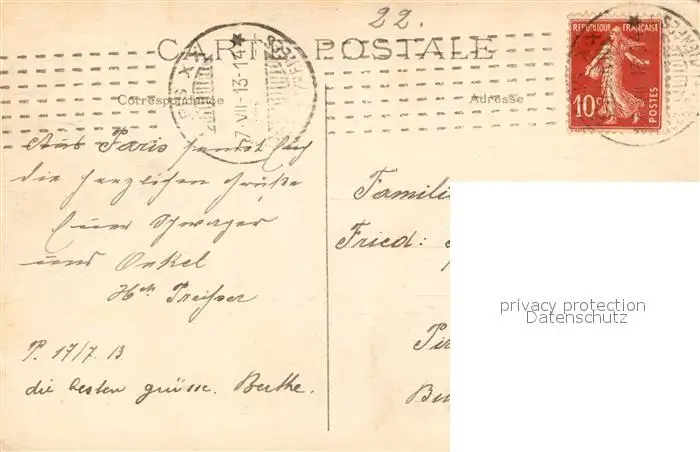 22.
CARTE POSTALE
Correspondance
Adresse
REPUBLIQUE FRANÇAISE
10c
POSTES
PARIS XX
7-VII-13-14
Aus Paris sendet Euch
die herzlichen Grüße
Euer Schwager
und Onkel
Hch Preißer
P. 17/7. 13
die besten grüsse. Berthe.
Famili
Fried:
privacy protection
Datenschutz